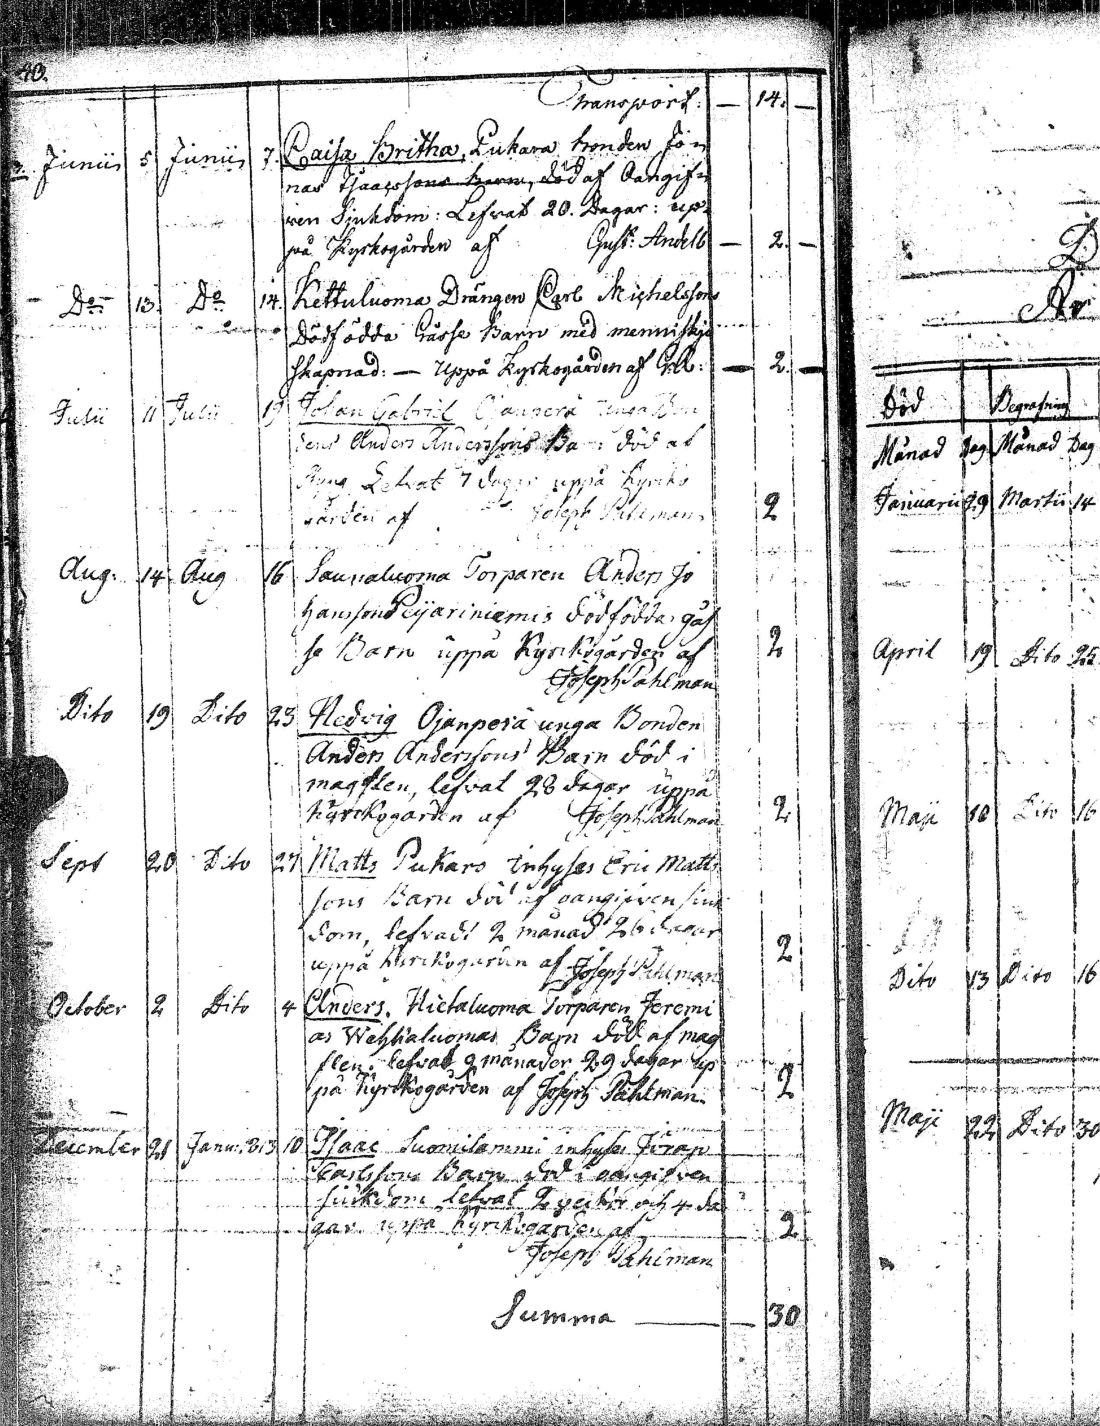 40.
Transport: — 14. —
Junii 5 Junii 7. Caisa Britha, Pukara bonden Jo=
nas Isaacssons barn, död af Oangif=
ven Sjukdom: Lefvat 20. Dagar: up=
på Kyrkogården af Gust: Andelb — 2. —
— Do 13. Do 14. Kettuluoma Drängen Carl Michelssons
Dödfödda Gåsse Barn med menniskje
skapnad: — Uppå Kyrkogården af G:A: — 2. —
Julii 11 Julii 19 Johan Gabriel Ojanperä unga Bon
dens Anders Anderssons Barn död af
Lefvat 7 dagar uppå Kyrko
gården af Joseph Pahlman 2
Aug. 14 Aug 16 Saunaluoma Torparen Anders Jo
hanssons Peijariniemis dödfödda gås
se Barn uppå Kyrkogården af 2
Joseph Pahlman
Dito 19 Dito 23 Hedvig Ojanperä unga Bonden
Anders Anderssons Barn död i
magflen, lefvat 28 dagar uppå
Kyrckogården af Joseph Pahlman 2
Sept 20 Dito 27 Matts Pukaro inhyses Eric Matts
sons Barn död af oangifven siuk
dom, lefvadt 2 månad 26 dagar 2
uppå Kyrckogården af Joseph Pahlman
October 2 Dito 4 Anders. Hietaluoma Torparen Jeremi
as Wehkaluomas Barn död af mag
flen. lefvat 9 månader 29 dagar up
på Kyrckogården af Joseph Pahlman. 2
December 21 Janu: 1813 10 Isaac Suomilammi inhyses
Carlssons Barn död i oangifven
siukdom lefvat 2 veckor och 4 da
gar uppå Kyrckogården af 2
Joseph Pahlman
Summa — — 30
Död Begrafning
Månad Dag Månad Dag
Januarii 29 Martii 14
April 19 Dito 25
Maji 10 Dito 16
Dito 13 Dito 16
Maji 22 Dito 30